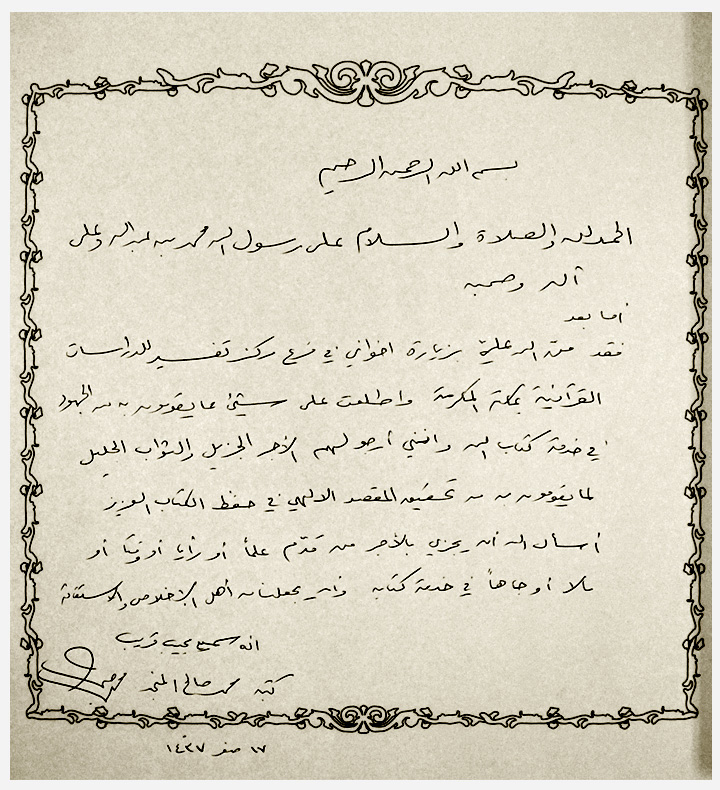 بسم الله الرحمن الرحيم
الحمد لله والصلاة والسلام على رسول الله محمد بن عبدالله وعلى
آله وصحبه
أما بعد
فقد منّ الله عليّ بزيارة اخواني في فرع مركز تفسير للدراسات
القرآنية بمكة المكرمة واطلعت على شيئ مما يقومون به من الجهود
في خدمة كتاب الله وانني أرجو لهم الأجر الجزيل والثواب الجليل
لما يقومون به من تحقيق المقصد الالهي في حفظ الكتاب العزيز
أسأل الله أن يجزي بالأجر من قدّم علماً أو رأيا أو وقتا أو
مالا أو جاهاً في خدمة كتابه وأن يجعلنا من أهل الإخلاص والاستقامة
انه سميع مجيب قريب
كتبه محمد صالح المنجد
١٧ صفر ١٤٣٧